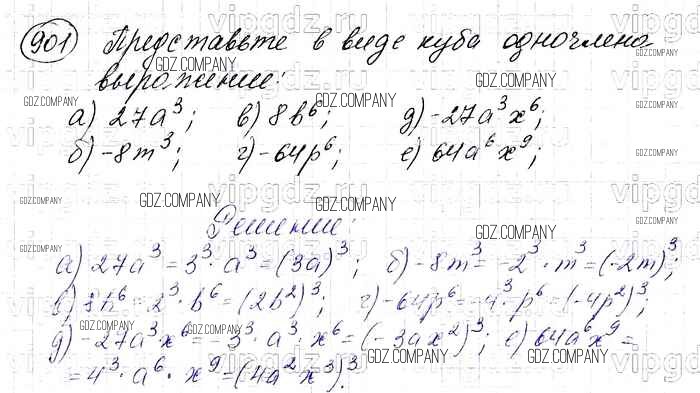 901 Представьте в виде куба одночлена
выражение:
а) 27a³; в) 8b⁶; д) -27a³x⁶;
б) -8m³; г) -64p⁶; е) 64a⁶x⁹;
Решение:
а) 27a³ = 3³·a³ = (3a)³; б) -8m³ = -2³·m³ = (-2m)³;
в) 8b⁶ = 2³·b⁶ = (2b²)³; г) -64p⁶ = -4³·p⁶ = (-4p²)³;
д) -27a³x⁶ = -3³·a³·x⁶ = (-3ax²)³; е) 64a⁶x⁹ =
= 4³·a⁶·x⁹ = (4a²x³)³.
GDZ.COMPANY
vipgdz.ru